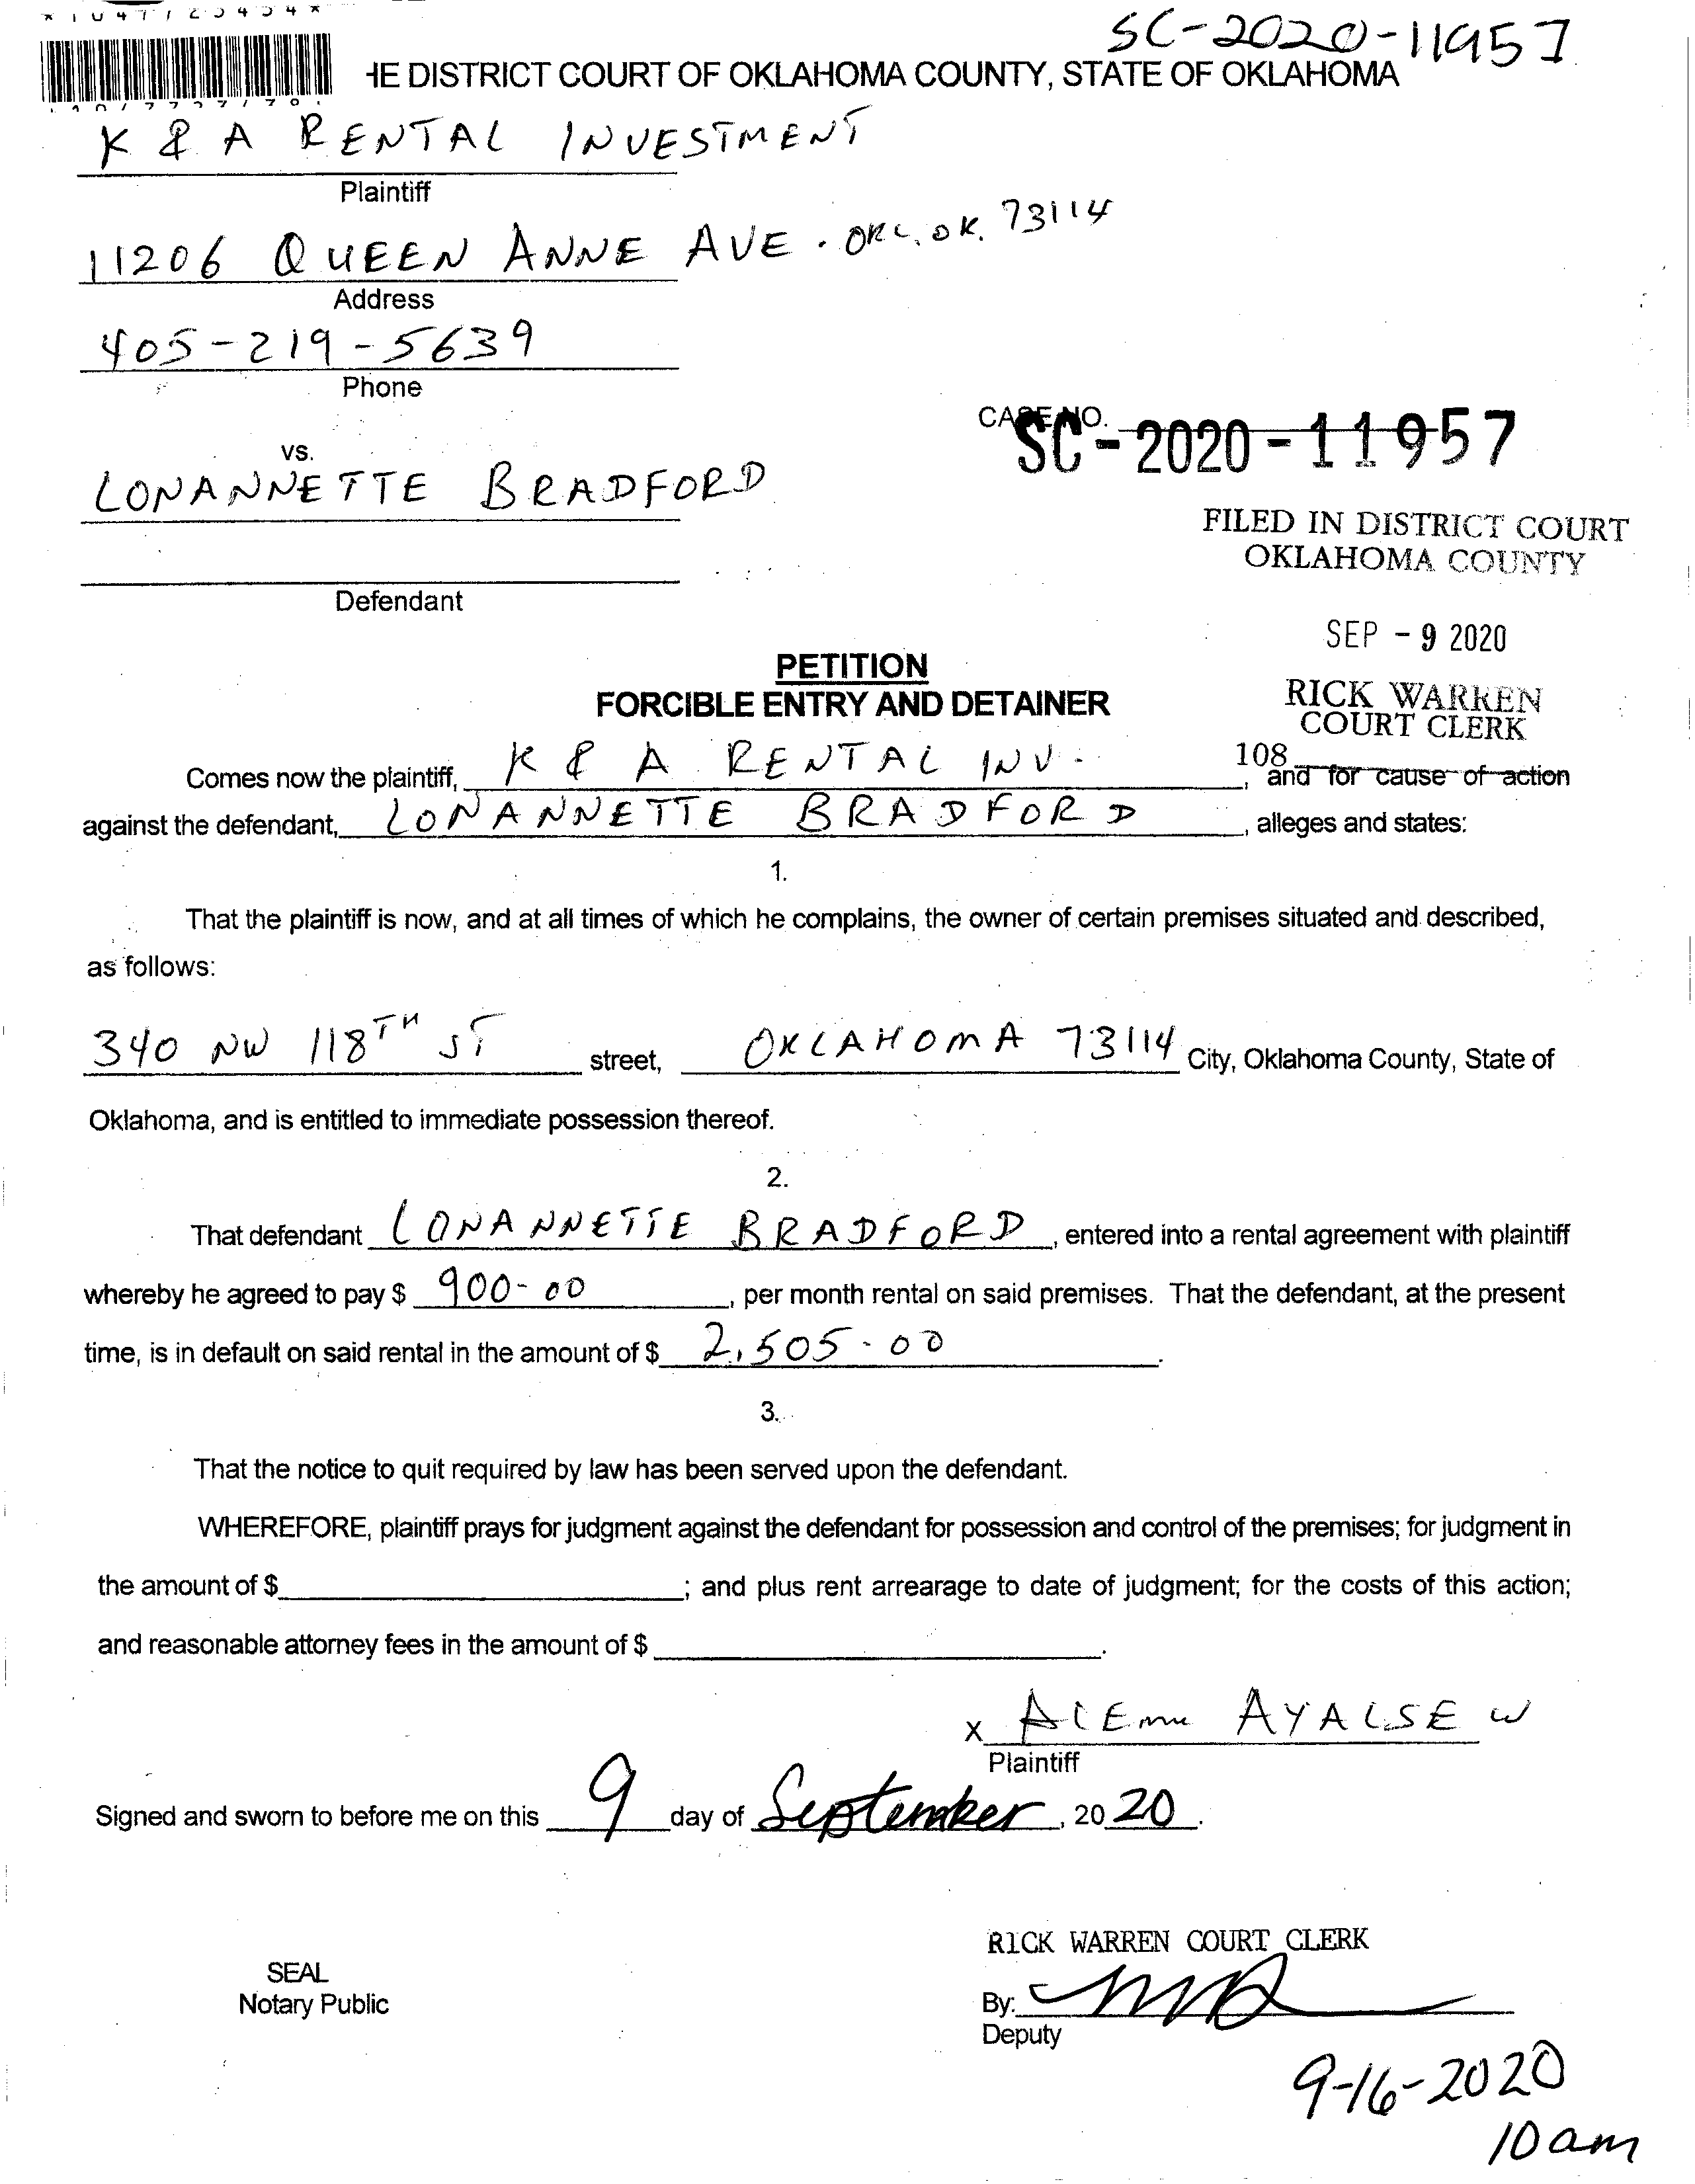 SC-2020-11957
HE DISTRICT COURT OF OKLAHOMA COUNTY, STATE OF OKLAHOMA
K & A RENTAL INVESTMENT
Plaintiff
11206 QUEEN ANNE AVE. OKC, OK. 73114
Address
405-219-5639
Phone
CASE NO.
SC-2020-11957
vs.
LONANNETTE BRADFORD
FILED IN DISTRICT COURT
OKLAHOMA COUNTY
Defendant
SEP - 9 2020
PETITION
FORCIBLE ENTRY AND DETAINER
RICK WARREN
COURT CLERK
108
Comes now the plaintiff, K & A RENTAL INV., and for cause of action
against the defendant, LONANNETTE BRADFORD, alleges and states:
1.
That the plaintiff is now, and at all times of which he complains, the owner of certain premises situated and described,
as follows:
340 NW 118TH ST street, OKLAHOMA 73114 City, Oklahoma County, State of
Oklahoma, and is entitled to immediate possession thereof.
2.
That defendant LONANNETTE BRADFORD, entered into a rental agreement with plaintiff
whereby he agreed to pay $ 900-00, per month rental on said premises. That the defendant, at the present
time, is in default on said rental in the amount of $ 2,505-00.
3.
That the notice to quit required by law has been served upon the defendant.
WHEREFORE, plaintiff prays for judgment against the defendant for possession and control of the premises; for judgment in
the amount of $ ; and plus rent arrearage to date of judgment; for the costs of this action;
and reasonable attorney fees in the amount of $ .
X ALEmu AYALSEW
Plaintiff
Signed and sworn to before me on this 9 day of September, 2020.
RICK WARREN COURT CLERK
SEAL
Notary Public
By:
Deputy
9-16-2020
10 am